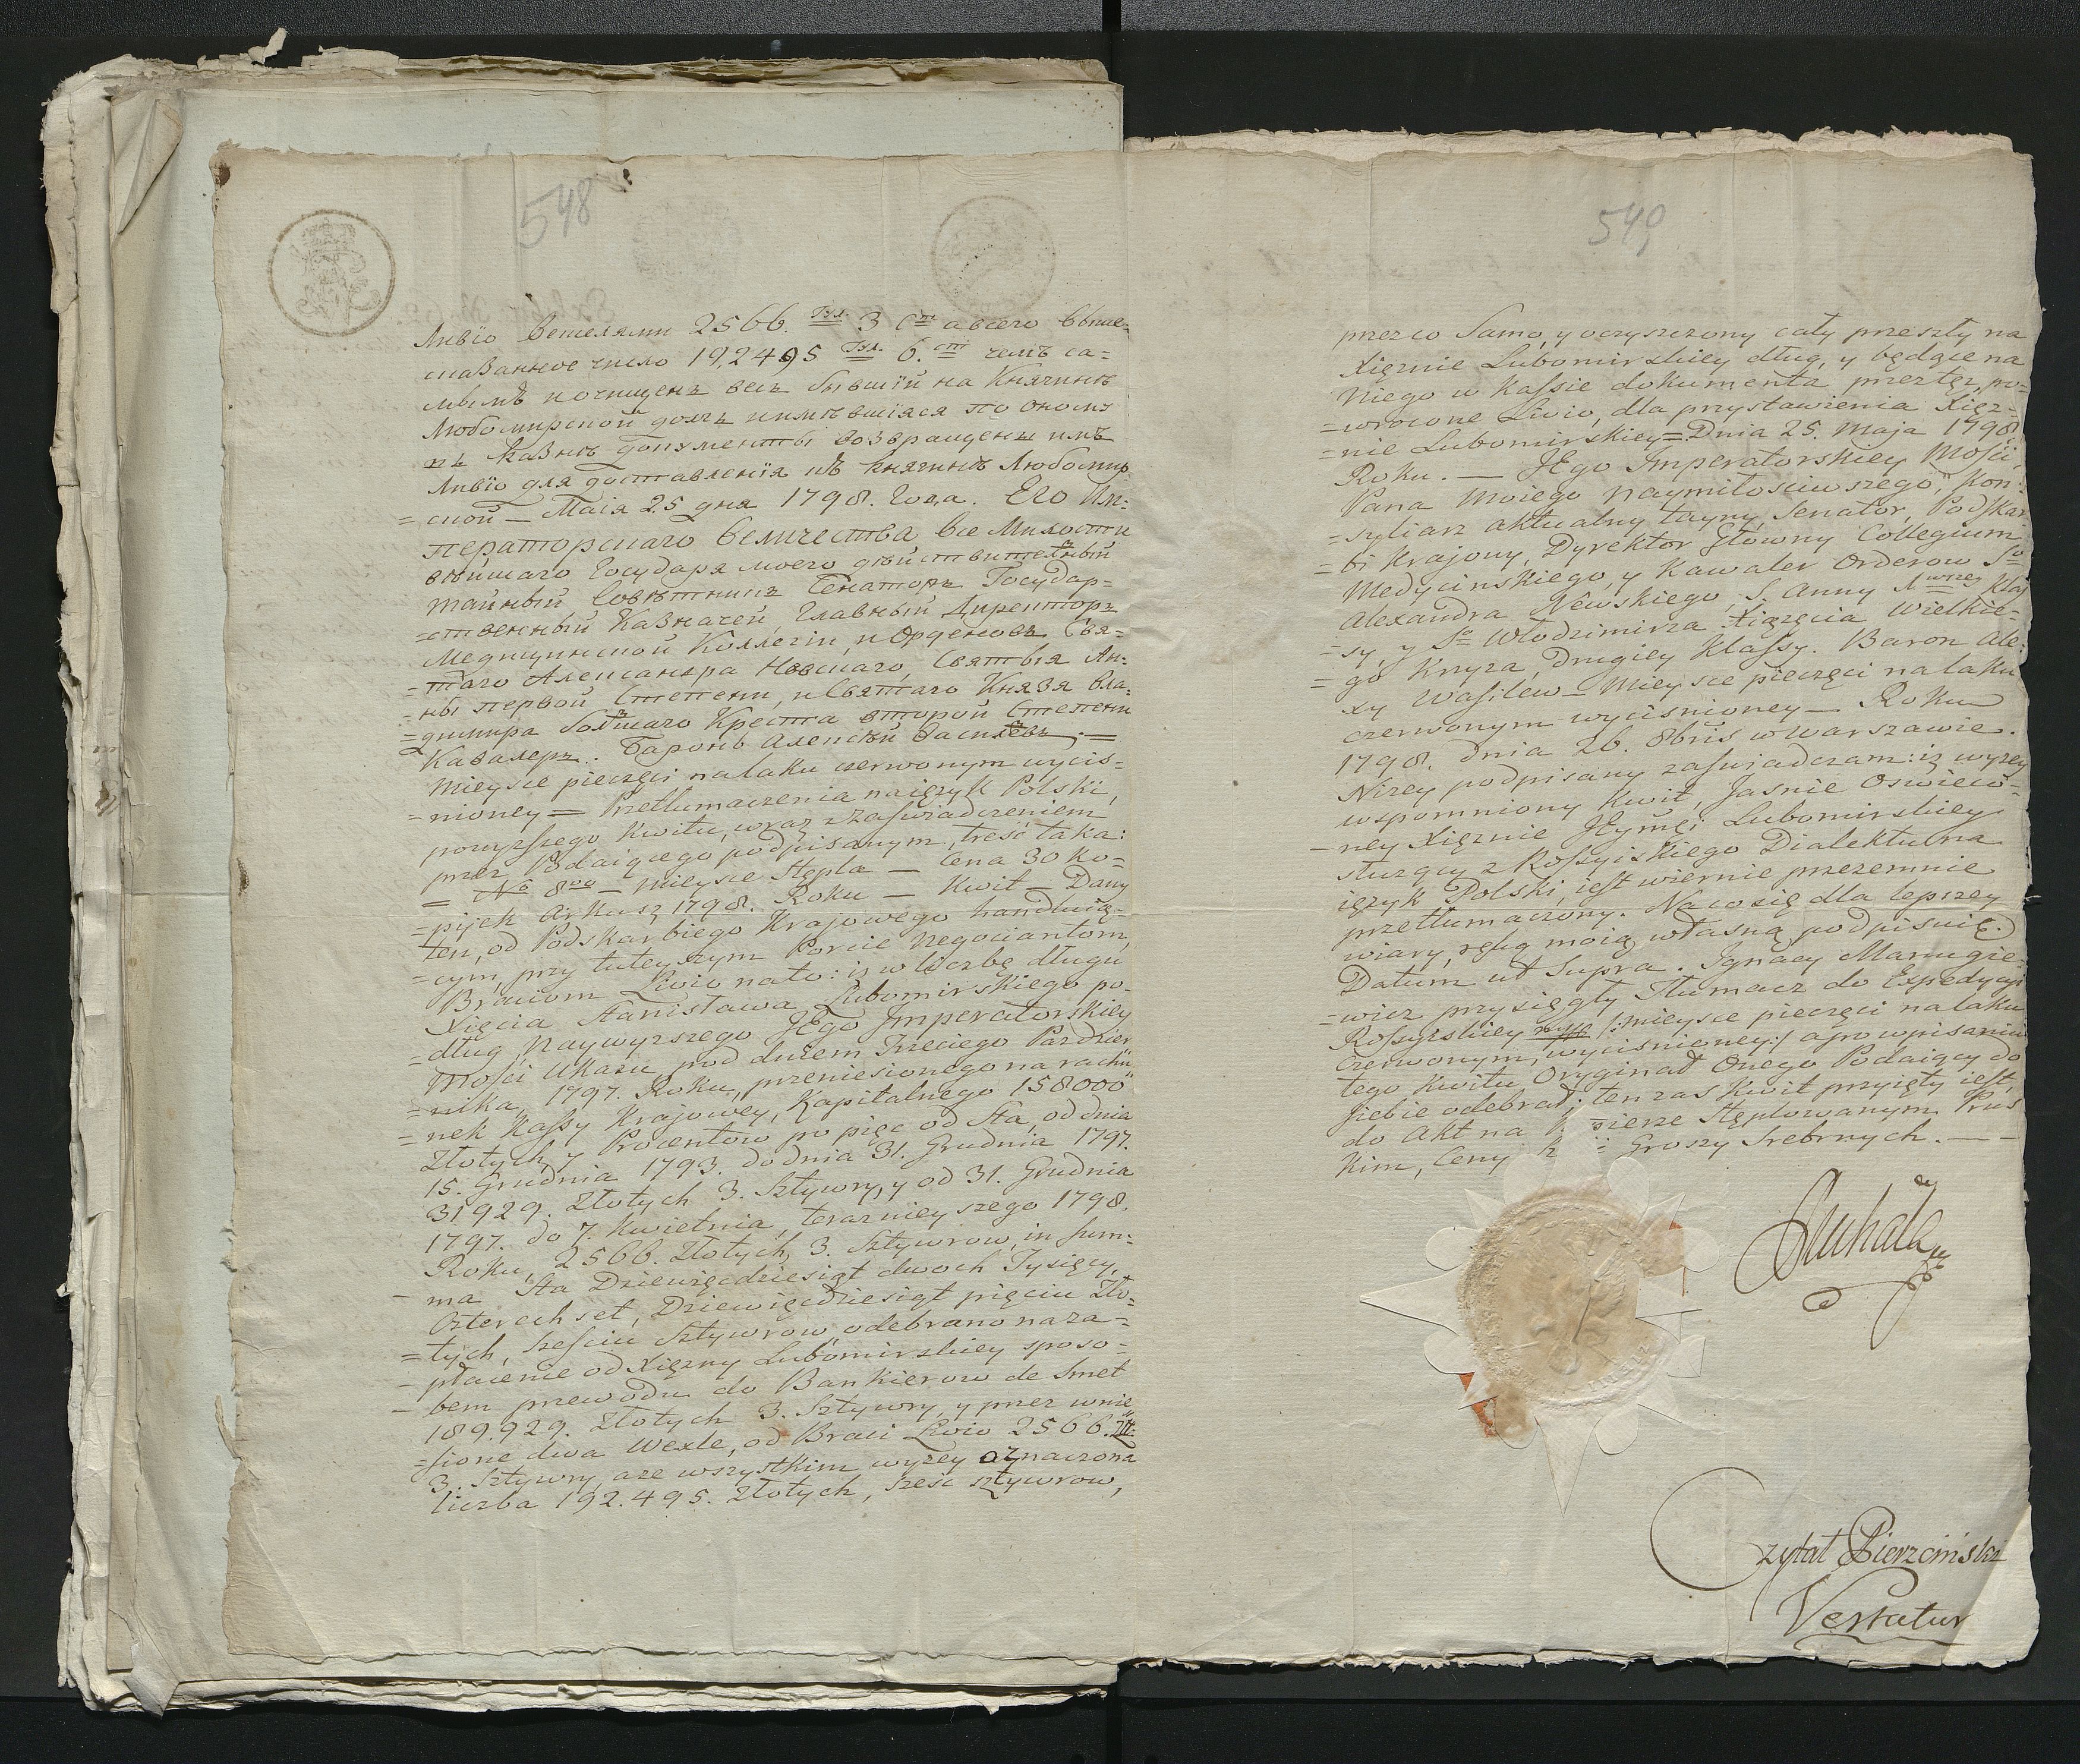 548
Ливїо векселями 2566. Гул. 3 Ст. а всего выше-
сказанное число 19,2495 Гул. 6. ст. чемъ са-
мымъ и очищенъ весь бывшїй на Княгинѣ
Любомирской долгъ и имѣвшїяся по оному
въ Казнѣ документы возвращены имъ
Ливїо для доставленїя къ Княгинѣ Любомир
= ской — Маїя 25 дня 1798. Года. Его Им=
ператорскаго Величества Все Милости
вѣйшаго Государя моего дѣйствителный
тайный Совѣтникъ Сенаторъ Государ=
=ственный Казначей, Главный Директоръ
Медицинской Коллегїи, и Орденовъ Свя=
=таго Александра Невскаго, Святыя Ан=
=ны первой Степени, и Святаго Князя Вла=
=димира болшаго Креста второй Степени
Кавалеръ. Баронъ Алексѣй Василевъ. =
Mieysce pieczęci na laku czerwonym wycis=
=nioney = Przetłumaczenia na ięzyk Polski,
powyższego Kwitu, wraz z zaświadczeniem
przez Podaiącego podpisanym, treść taka:
= No 8vo — Mieysce Stępla — Cena 30 Ko=
=pijek Arkusz 1798. Roku — Kwit — Dany
ten, od Podskarbiego Krajowego handluią=
=cym, przy tuteyszym Porcie Negociantom,
Braciom Livio na to: iż w liczbę długu
Xięcia Stanisława Lubomirskiego po-
=dług Naywyższego JEgo Imperatorskiey
Mości Ukazu pod dniem Trzeciego Pazdzier
=nika, 1797. Roku, przeniesionego na rachu
=nek Kassy Krajowey, Kapitalnego 158000
Złotych, y Procentow po pięć od Sta, od dnia
15. Grudnia 1793. do dnia 31. Grudnia 1797.
31929. Złotych 3. Sztywry, y od 31. Grudnia
1797. do 7. Kwietnia, teraznieyszego 1798.
Roku, 2566. Złotych, 3. Sztywrow, in Sum=
- ma Sta Dziewięćdziesiąt dwoch Tysięcy,
Czterechset, Dziewięćdziesiąt pięciu Zło=
=tych, sześciu Sztywrow, odebrano na za=
- płacenie od Xiężny Lubomirskiey sposo=
- bem przewodu do Bankierow de Smet
189.929. Złotych 3. Sztywry, y przez wnie
=sione dwa Wexle, od Braci Livio 2566. Zł:
3. Sztywry, a ze wszystkim wyżey oznaczona
liczba 192.495. Złotych, sześć sztywrow,
549
przez co Samo, y oczyszczony cały przeszły na
Xiężnie Lubomirskiey dług, y będące na
Niego w Kassie dokumenta przez tęż, po=
=wrocone Livio, dla przystawienia Xięż=
=nie Lubomirskiey = Dnia 25. Maja 1798
Roku. — JEgo Imperatorskiey Mości,
Pana Moiego Naymiłosciwszego, Kon=
=syliarz aktualny tayny, Senator, Podskar
=bi Krajowy, Dyrektor Główny Collegium
Medycinskiego, y Kawaler Orderow So
Alexandra Newskiego, S. Anny 1wszey Klas
=sy, y So Włodzimirza Xiążęcia Wielkie=
= go Krzyża, Drugiey Klassy. Baron Ale=
xy Wasilew — Mieysce pieczęci na laku
czerwonym wyciśnioney — Roku
1798. dnia 26. 8bris w Warszawie.
Niżey podpisany zaświadczam: iż wyżey
wspomniony Kwit, Jaśnie Oświeco=
- ney Xiężnie JEymci Lubomirskiey
służący z Rossyiskiego Dialektu na
ięzyk Polski, iest wiernie przezemnie
przetłumaczony. Na co się dla lepszey
wiary, ręką moią własną podpisuię.
Datum ut Supra. Ignacy Marugie=
=wicz przysięgły Tłumacz do Expedycyi
Rossyiskiey mpp /: mieysce pieczęci na laku
czerwonym, wyciśnioney:/ a po wpisaniu
tego Kwitu, Oryginał Onego Podaiący do
siebie odebrał; ten zaś Kwit przyięty iest,
do Akt na Papierze Stęplowanym Prus
kim, Ceny Groszy Srebrnych. — —
Czytał Pierzciński
Vertatur